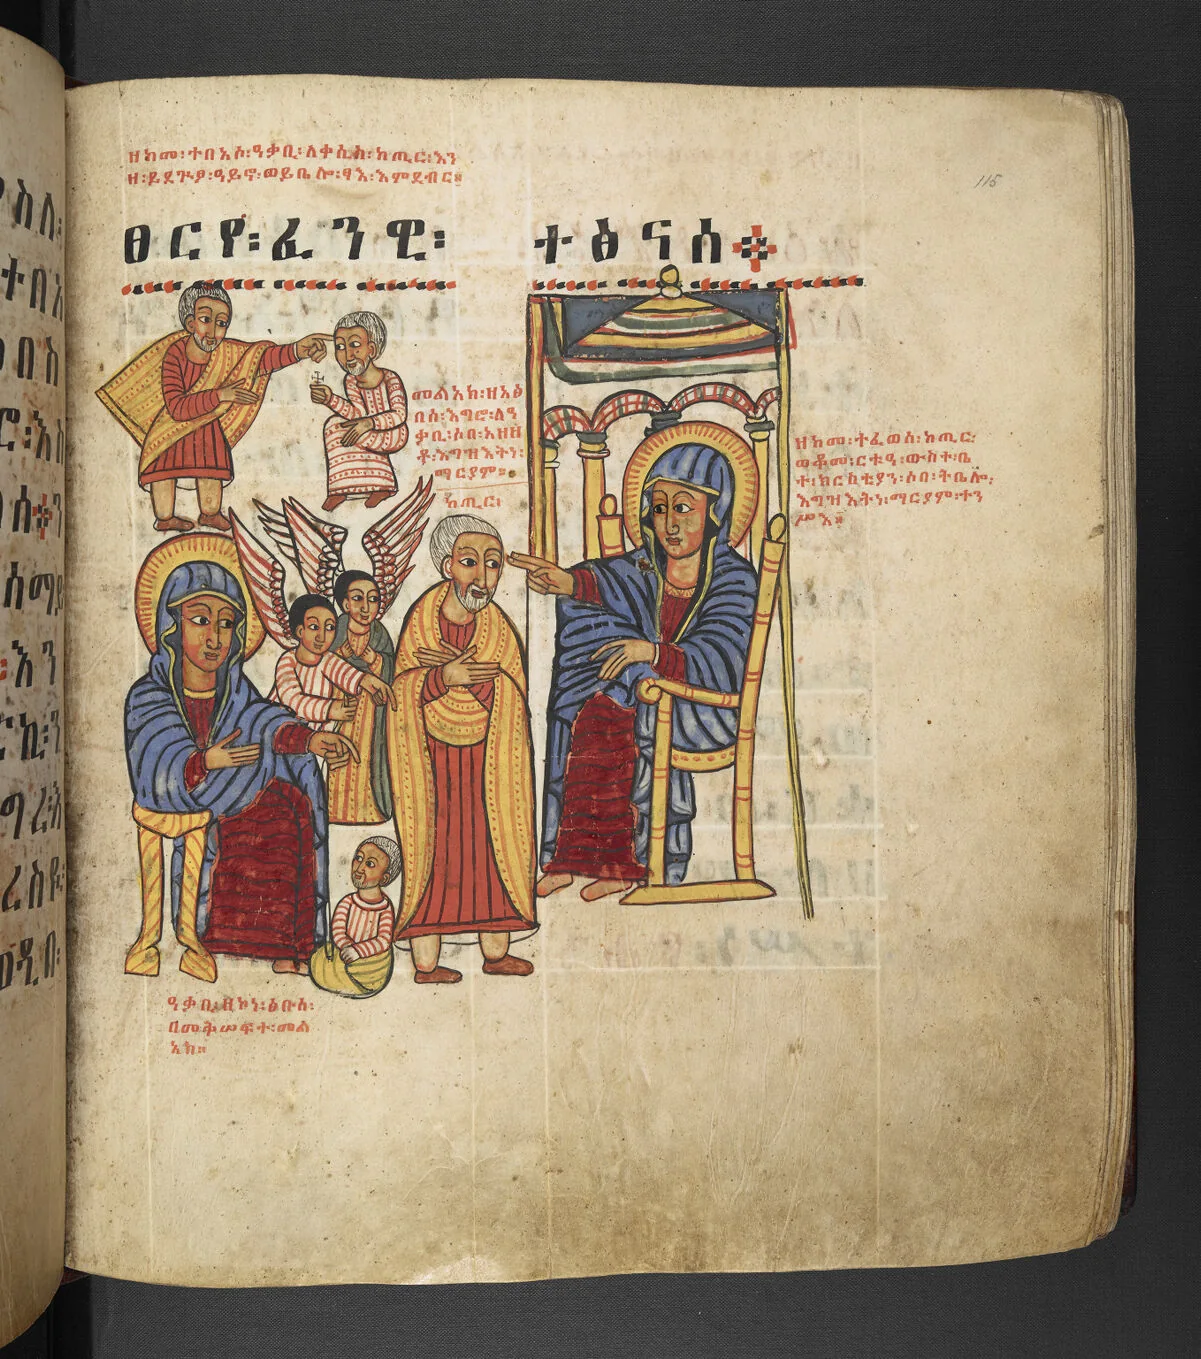 ዘከመ፡ተበአሰ፡ዓቃቢ፡ለቀሲስ፡ከጢር፡እን
ዘ፡ይደጕፆ፡ዓይኖ፡ወይቤሎ፡ፃእ፡እምደብር።
ፀርየ፡ፈንዊ፡
ተፅናሰ
115
መልአክ፡ዘአፅ
በሰ፡እግሮ፡ለዓ
ቃቢ፡ሶበ፡አዘዘ
ቶ፡እግዝእትነ፡
ማርያም።
ከጢር፡
ዘከመ፡ተፈወሰ፡ከጢር፡
ወቆመ፡ርቱዓ፡ውስተ፡ቤ
ተ፡ክርስቲያን፡ሶበ፡ትቤሎ፡
እግዝእትነ፡ማርያም፡ተን
ሥእ።
ዓቃቢ፡ዘኮነ፡ፅቡሰ፡
በመቅሠፍተ፡መል
አክ።